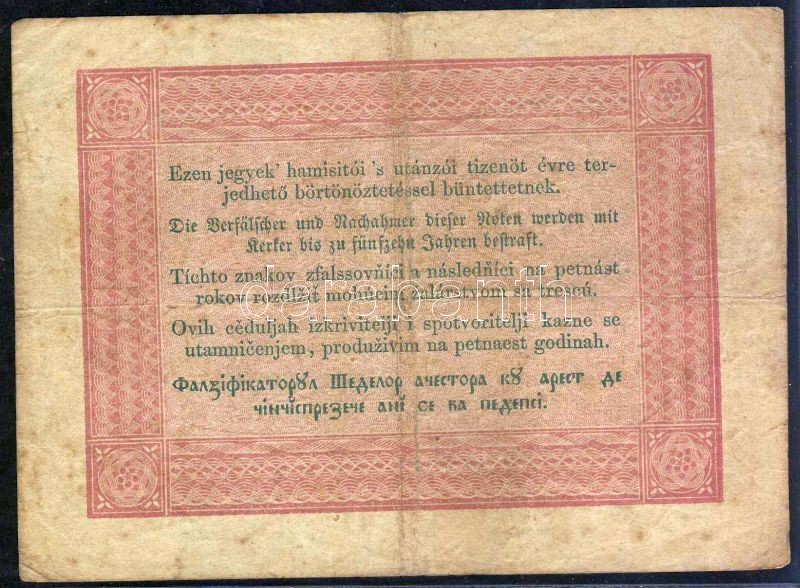 Ezen jegyek' hamisitói 's utánzói tizenöt évre ter-
jedhető börtönöztetéssel büntettetnek.
Die Verfälscher und Nachahmer dieser Noten werden mit
Kerker bis zu fünfzehn Jahren bestraft.
Tíchto znakov zfalssovňíci a následňíci na petnást
rokov rozdlžiť mohúcim žalárstvom sa trescú.
Ovih cěduljah izkrivitelji i spotvoritelji kazne se
utamničenjem, produživim na petnaest godinah.
Фалзіфікаторȣл Шеделор ачестора кȣ арест де
чінчіспрезече ані се ва педепсі.
darabanth